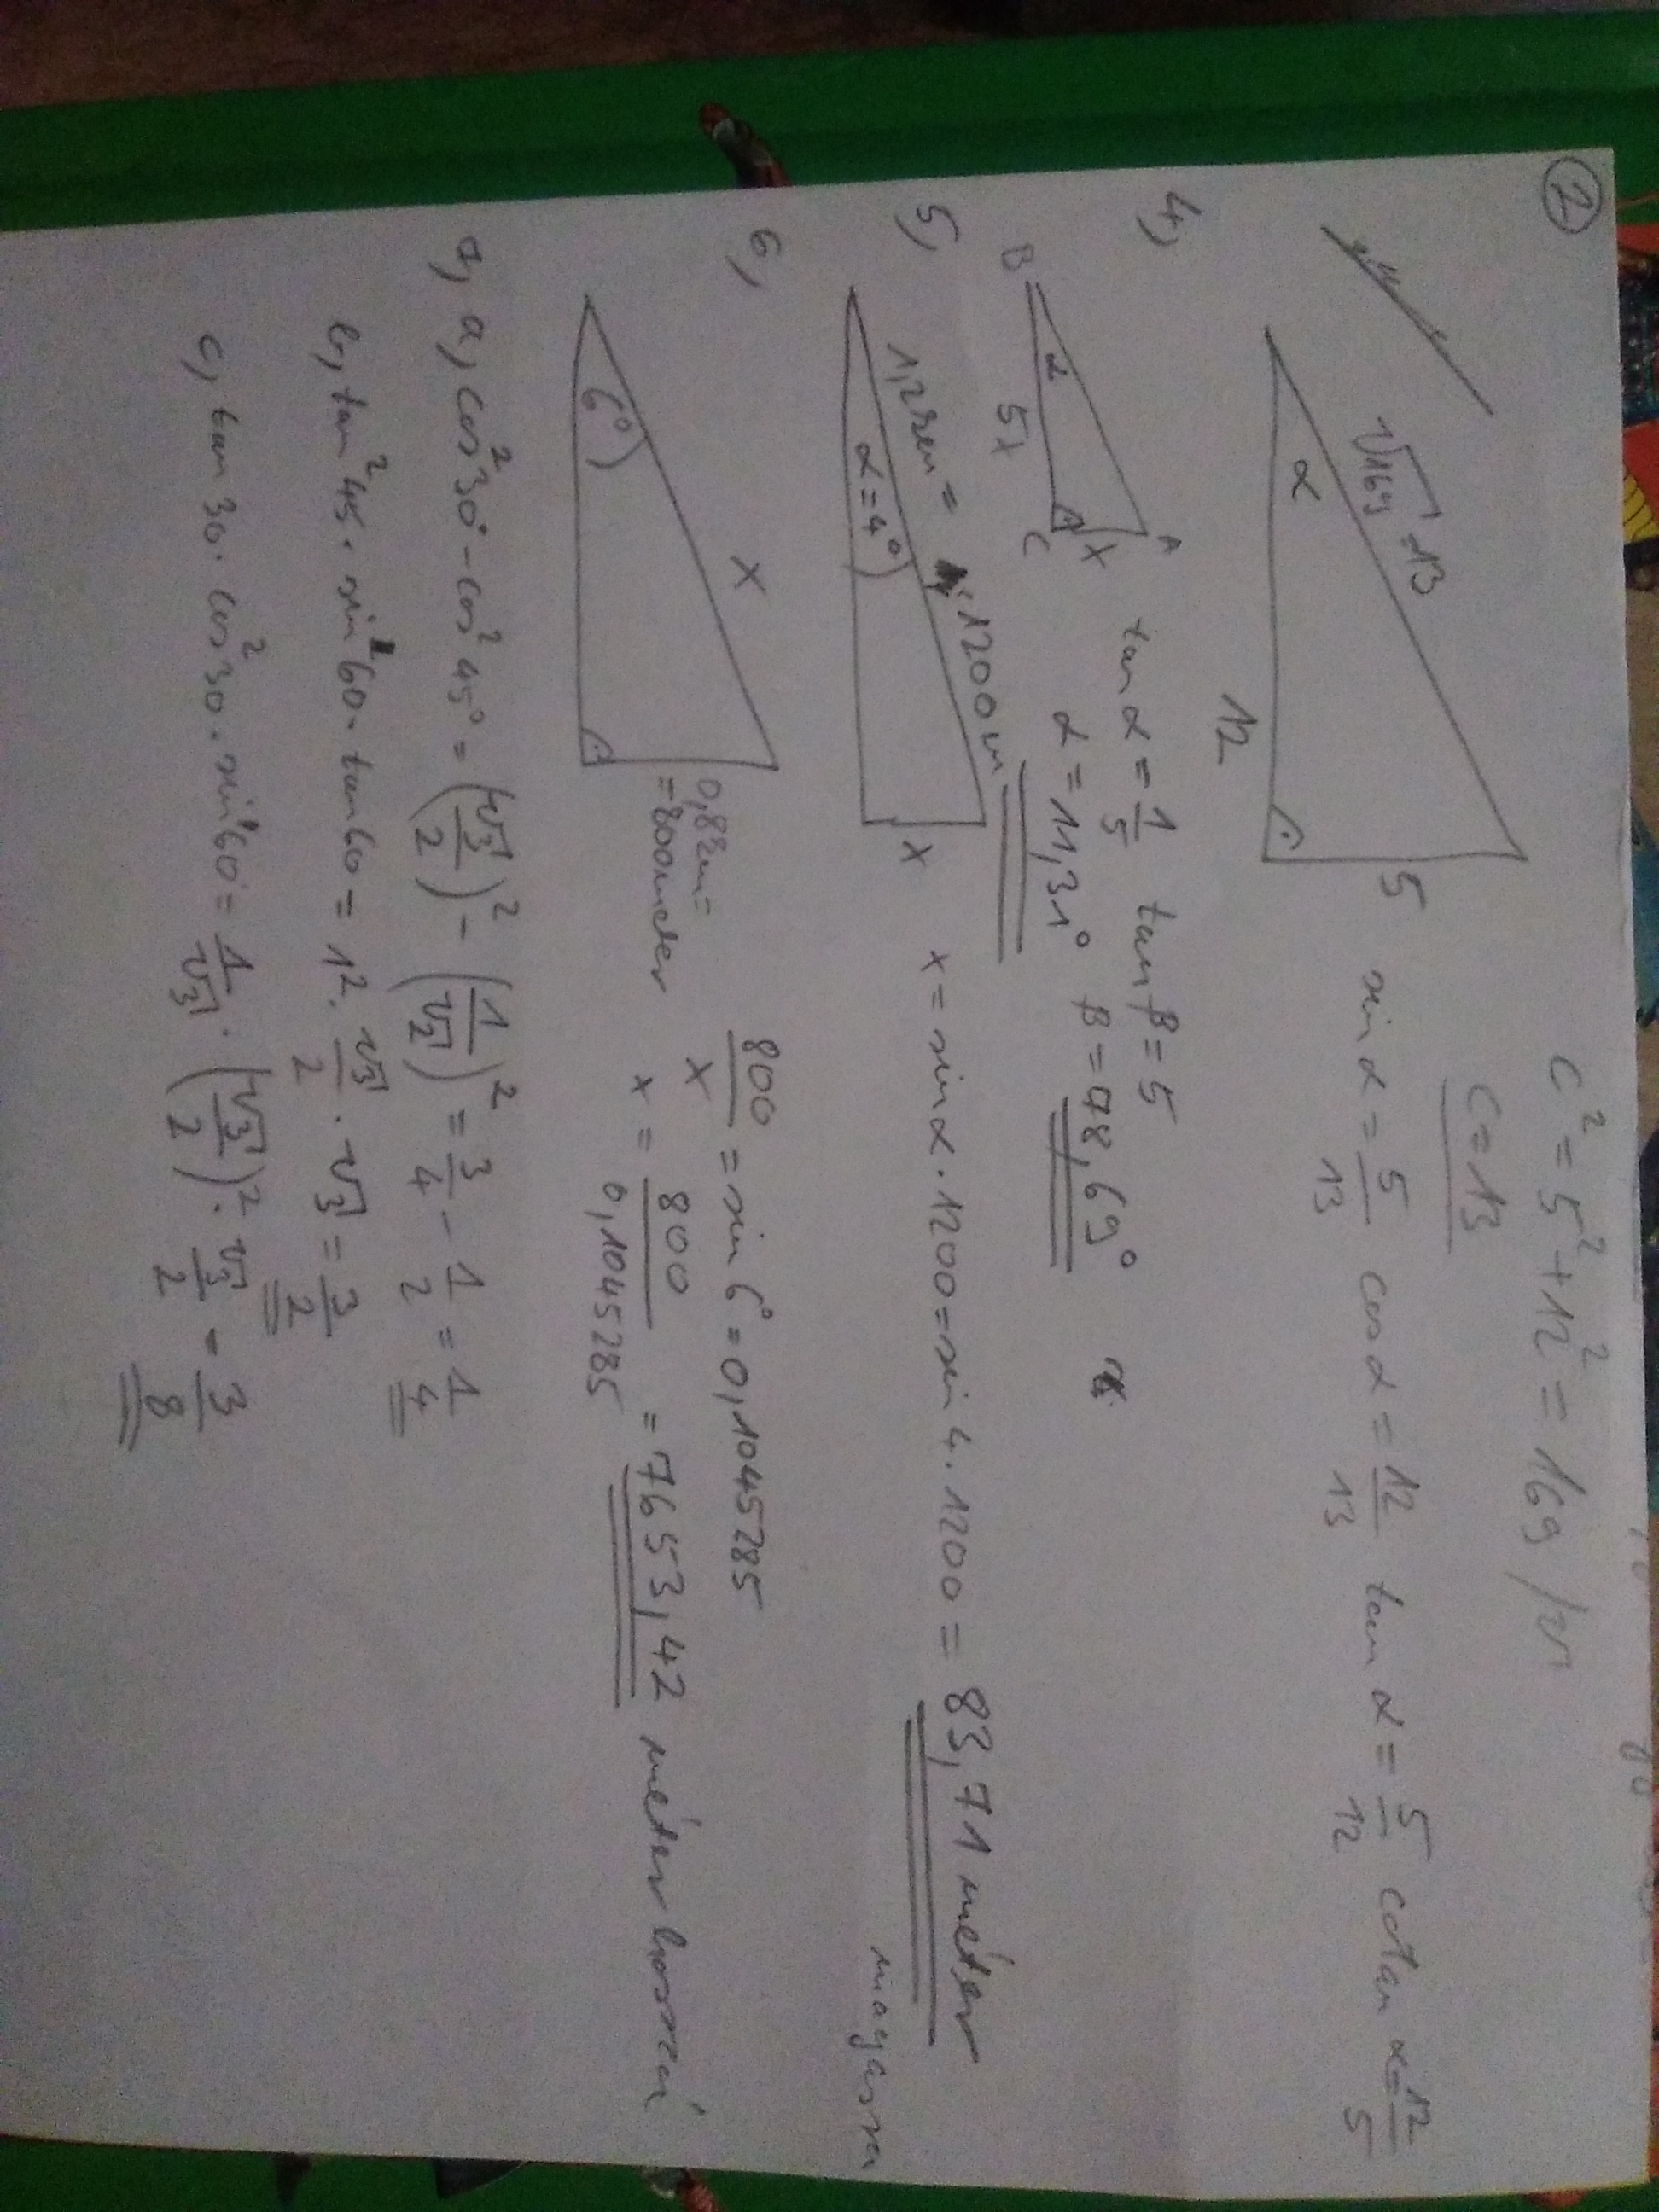 ②
c² = 5² + 12² = 169 /√
c = 13
√169 = 13
α
5
12
sin α = 5/13 cos α = 12/13 tan α = 5/12 cotan α = 12/5
4,
A
B
C
α
x
5x
tan α = 1/5 tan β = 5
α = 11,31° β = 78,69°
5,
1,2km = 1200m
α = 4°
x
x = sin α · 1200 = sin 4 · 1200 = 83,71 méter
magasra
6,
x
6°
0,8km =
= 800 méter
800/x = sin 6° = 0,1045285
x = 800/0,1045285 = 7653,42 méter hosszú
7, a, cos² 30° - cos² 45° = (√3/2)² - (1/√2)² = 3/4 - 1/2 = 1/4
b, tan² 45 · sin 60 · tan 60 = 1² · √3/2 · √3 = 3/2
c, tan 30 · cos² 30 · sin 60 = 1/√3 · (√3/2)² · √3/2 = 3/8